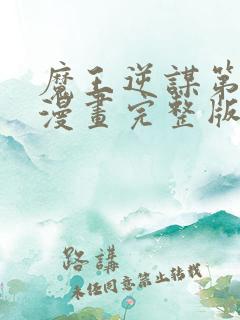 魔王逆謀第
漫畫完整版
路講
未經同意禁止轉載